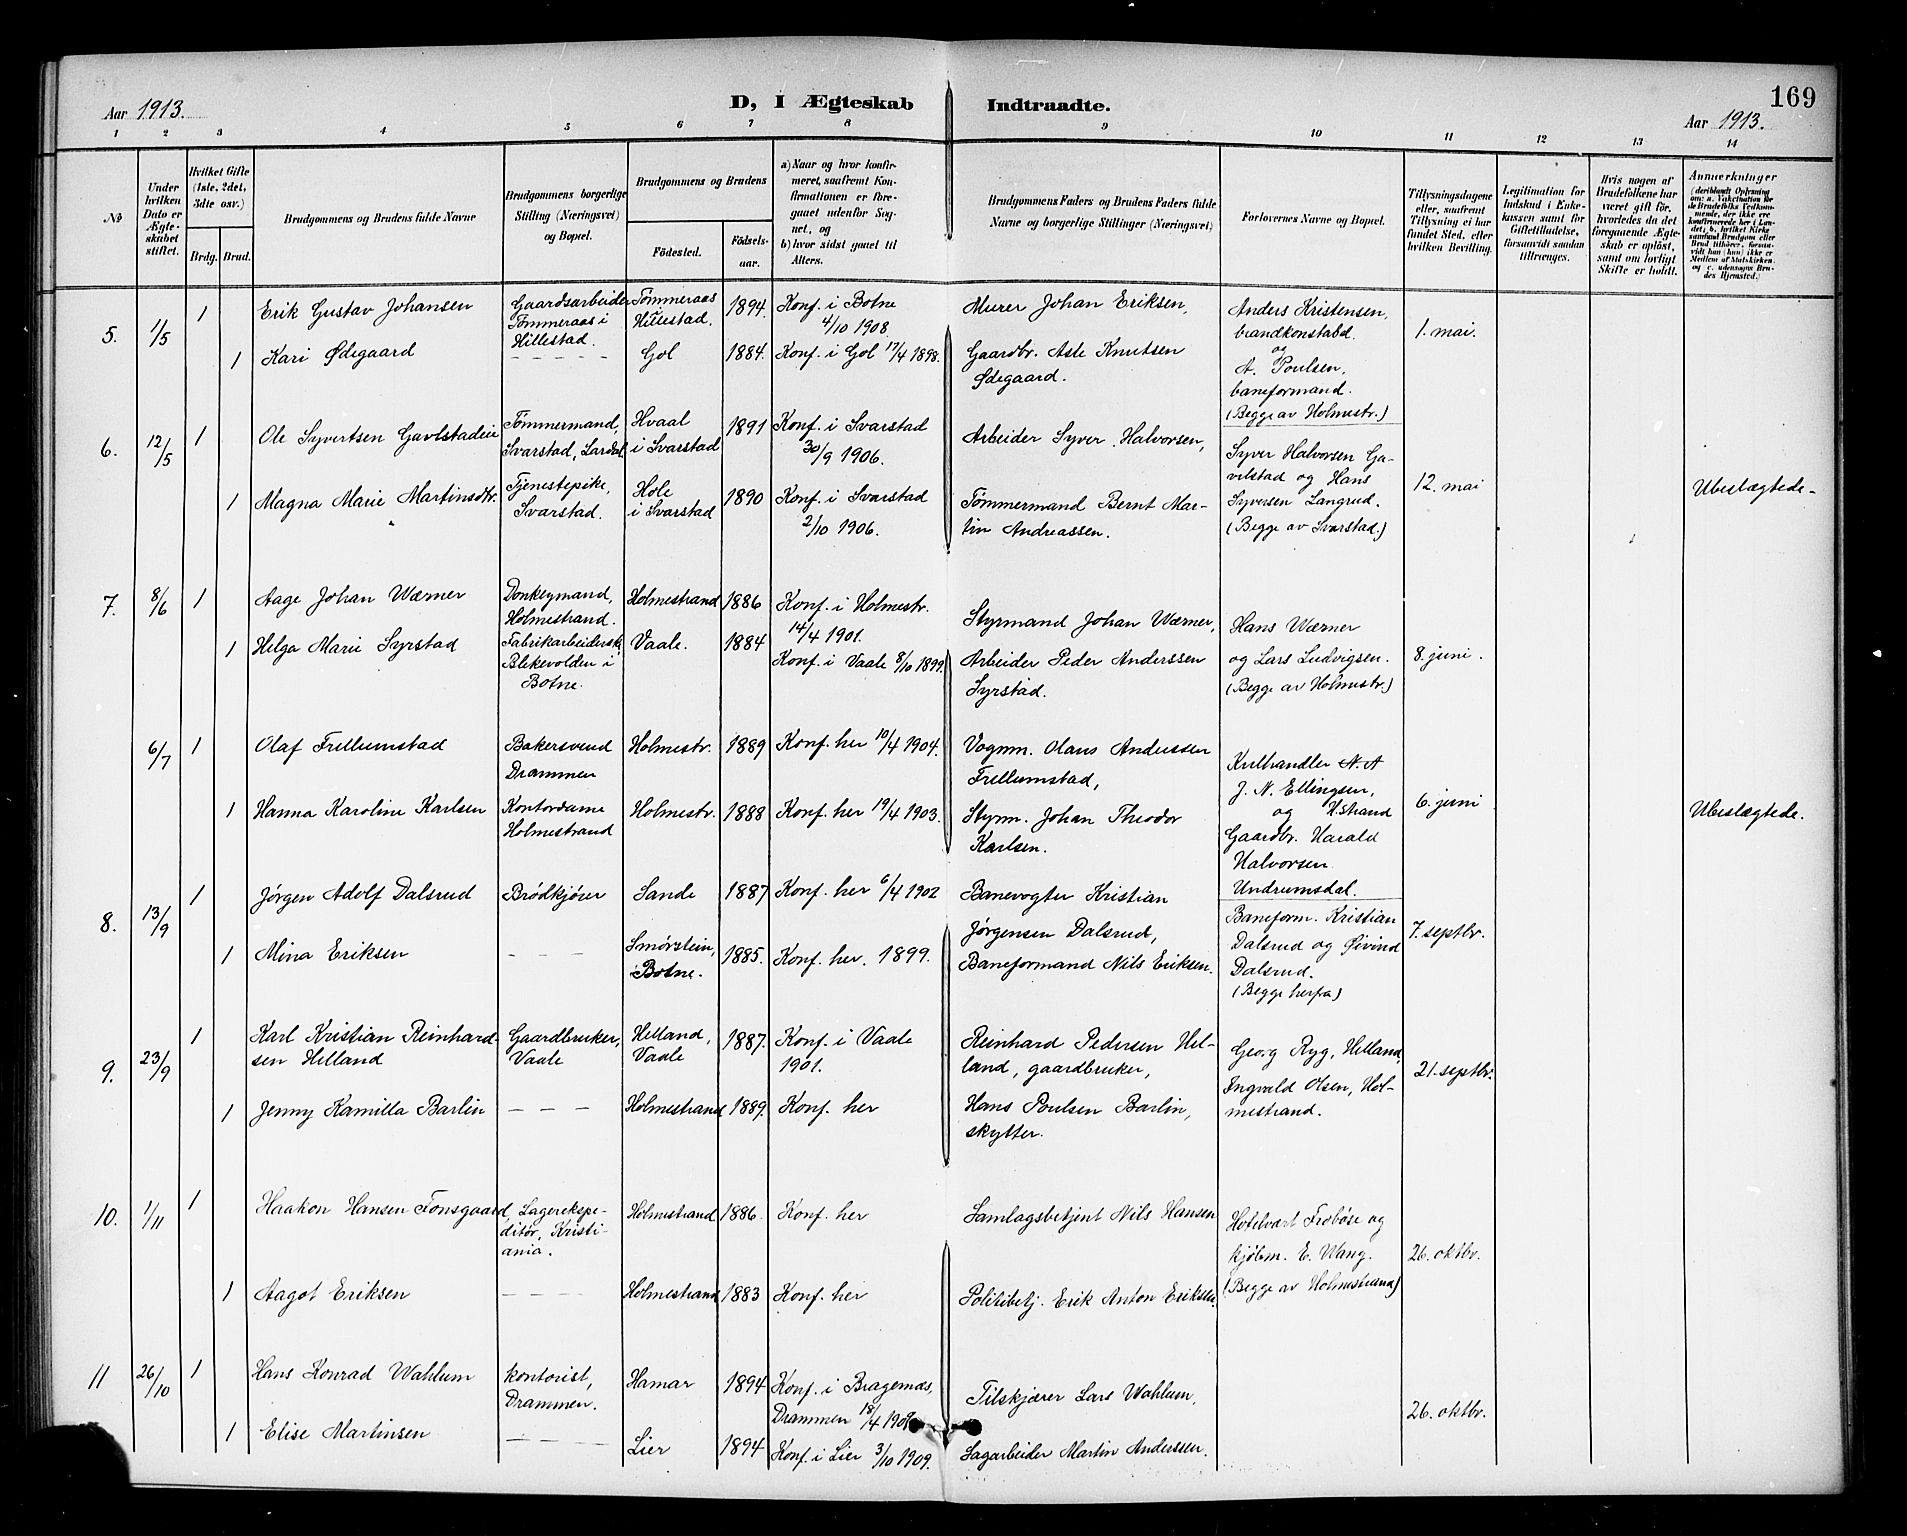 169
Aar 1913.
D, I Ægteskab Indtraadte.
Aar 1913.
1 2 3 4 5 6 7 8 9 10 11 12 13 14
No
Under hvilken Dato er Ægteskabet stiftet.
Hvilket Gifte (1ste, 2det, 3dte osv.)
Brdg. Brud.
Brudgommens og Brudens fulde Navne
Brudgommens borgerlige Stilling (Næringsvei) og Bopæl.
Brudgommens og Brudens
Födested.
Födselsaar.
a) Naar og hvor konfirmeret, saafremt Konfirmationen er foregaaet udenfor Sognet, og
b) hvor sidst gaaet til Alters.
Brudgommens Faders og Brudens Faders fulde Navne og borgerlige Stillinger (Næringsvei)
Forlovernes Navne og Bopæl.
Tillysningsdagene eller, saafremt Tillysning ei har fundet Sted, efter hvilken Bevilling.
Legitimation for Indskud i Enkekassen samt for Giftetilladelse, forsaavidt saadan tiltrænges.
Hvis nogen af Brudefolkene har været gift för, hvorledes da det foregaaende Ægteskab er oplöst, samt om lovligt Skifte er holdt.
Anmærkninger
(deriblandt Oplysning om: a. Vakcination for de Brudefolks Vedkommende, der ikke ere konfirmerede her i Landet; b. hvilket Kirkesamfund Brudgom eller Brud tilhörer, forsaavidt han (hun) ikke er Medlem af Statskirken, og c. udensogns Brudes Hjemsted.)
5. 1/5 1 Erik Gustav Johansen
Gaardsarbeider
Tømmeraas i
Hillestad.
Tømmeraas
Hillestad.
1894. Konf. i Botne
4/10 1908.
Murer Johan Eriksen,
Anders Kristensen,
brandkonstabel.
og
A. Poulsen,
baneformand.
(Begge av Holmestr.)
1. mai.
1 Kari Ødegaard
— — — — —
Gol 1884. Konf. i Gol 17/4 1898.
Gaardbr. Asle Knutsen
Ødegaard.
6. 12/5 1 Ole Syvertsen Gavlstadeie
Tømmermand,
Svarstad, Lardal.
Hvaal
i Svarstad
1891 Konf. i Svarstad
30/9 1906.
Arbeider Syver Halvorsen,
Syver Halvorsen Ga-
vilstad og Hans
Syversen Langrud.
(Begge av Svarstad.)
12. mai
Ubeslægtede-
1 Magna Marie Martinsdtr.
Tjenestepike,
Svarstad.
Hole
i Svarstad
1890 Konf. i Svarstad
2/10 1906.
Tømmermand Bernt Mar-
tin Andreassen.
7. 8/6 1 Aage Johan Wærner
Donkeymand,
Holmestrand.
Holmestrand 1886 Konf. i Holmestr.
14/4 1901.
Styrmand Johan Wærner,
Hans Wærner
og Lars Ludvigsen.
(Begge av Holmestr.)
8. juni.
1 Helga Marie Syrstad
Fabrikarbeiderske,
Blekevolden i
Botne.
Vaale. 1884
Konf. i Vaale 8/10 1899.
Arbeider Peder Anderssen
Syrstad.
6/7 1 Olaf Frellumstad
Bakersvend
Drammen
Holmestr. 1889 Konf. her 10/4 1904.
Vognm. Olaus Anderssen
Frellumstad,
Kulhandler N. A
J. N. Ellingsen,
og H.strand
Gaardbr. Harald
Halvorsen
Undrumsdal.
6. juni
Ubeslægtede.
1 Hanna Karoline Karlsen
Kontordame
Holmestrand
Holmestr. 1888 Konf. her 19/4 1903.
Styrm. Johan Theodor
Karlsen.
8. 13/9 1 Jørgen Adolf Dalsrud
Brödkjörer Sande 1887 Konf. her 6/4 1902
Banevogter Kristian
Jørgensen Dalsrud,
Baneform. Kristian
Dalsrud og Øivind
Dalsrud.
(Begge herfra)
7. septbr.
1 Mina Eriksen
— — —
Smørstein,
Botne.
1885. Konf. her. 1899.
Baneformand Nils Eriksen.
9. 23/9 1 Karl Kristian Reinhard-
sen Helland
Gaardbruker,
Vaale
Helland,
Vaale
1887. Konf. i Vaale
1901.
Reinhard Pedersen Hel-
land, gaardbruker,
Georg Ryg, Helland,
Ingvald Olsen, Hol-
mestrand.
21. septbr.
1 Jenny Kamilla Barlin
— — —
Holmestrand 1889. Konf. her
Hans Poulsen Barlin,
skytter.
10. 1/11 1 Haakon Hansen Fonsgaard
Lagerekspe-
ditör, Kristi-
ania.
Holmestrand 1886. Konf. her
Samlagsbetjent Nils Hansen
Hotelvært Frobøse og
kjöbm. E. Wang.
(Begge av Holmestrand)
26. oktbr.
1 Aagot Eriksen
— — — — —
Holmestrand 1883 Konf. her
Politibetj. Erik Anton Eriksen.
11 26/10 1 Hans Konrad Wahlum
kontorist,
Drammen.
Hamar 1894 Konf. i Bragernæs,
Drammen 18/4
Tilskjærer Lars Wahlum,
26. oktbr.
1 Elise Martinsen
— — — —
Lier 1894 Konf. i Lier 3/10 1909.
Sagarbeider Martin Anderssen.